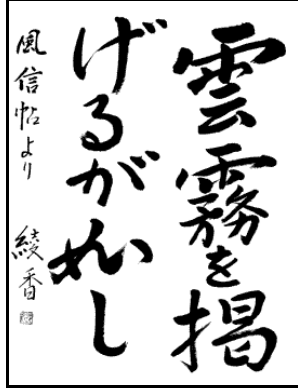 雲霧を掲
げるが如し
風信帖より 綾香